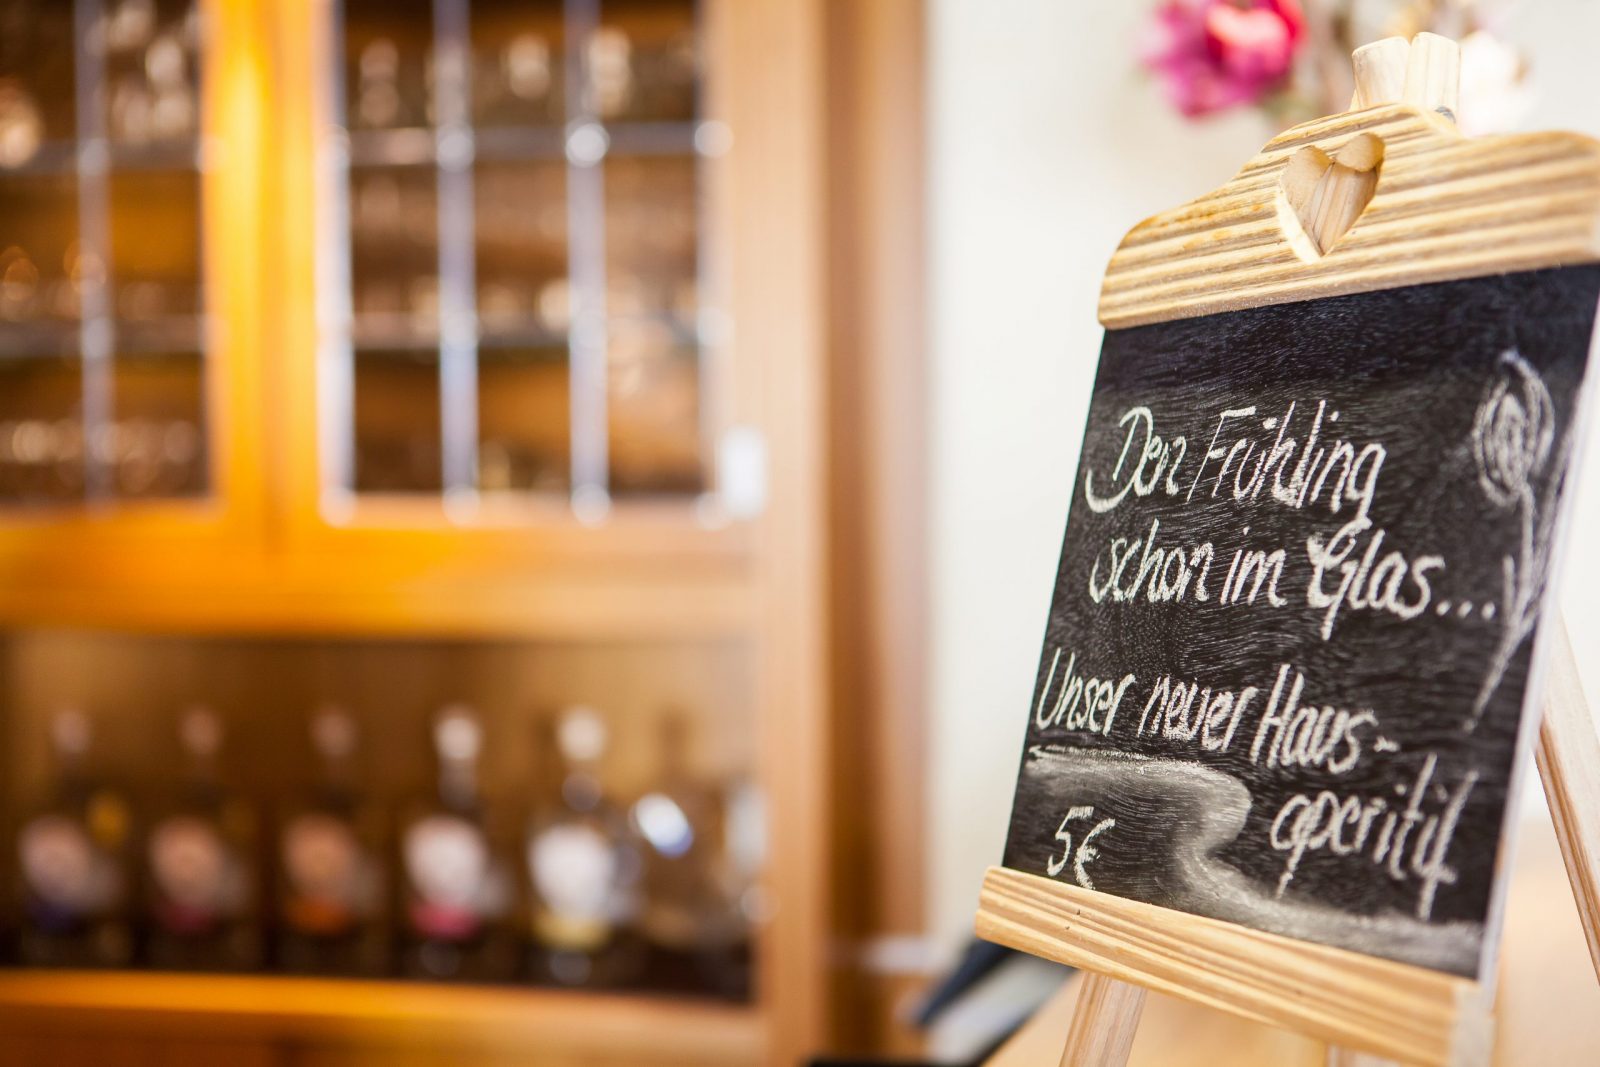 Den Frühling
schon im Glas...
Unser neuer Haus-
aperitif
5€